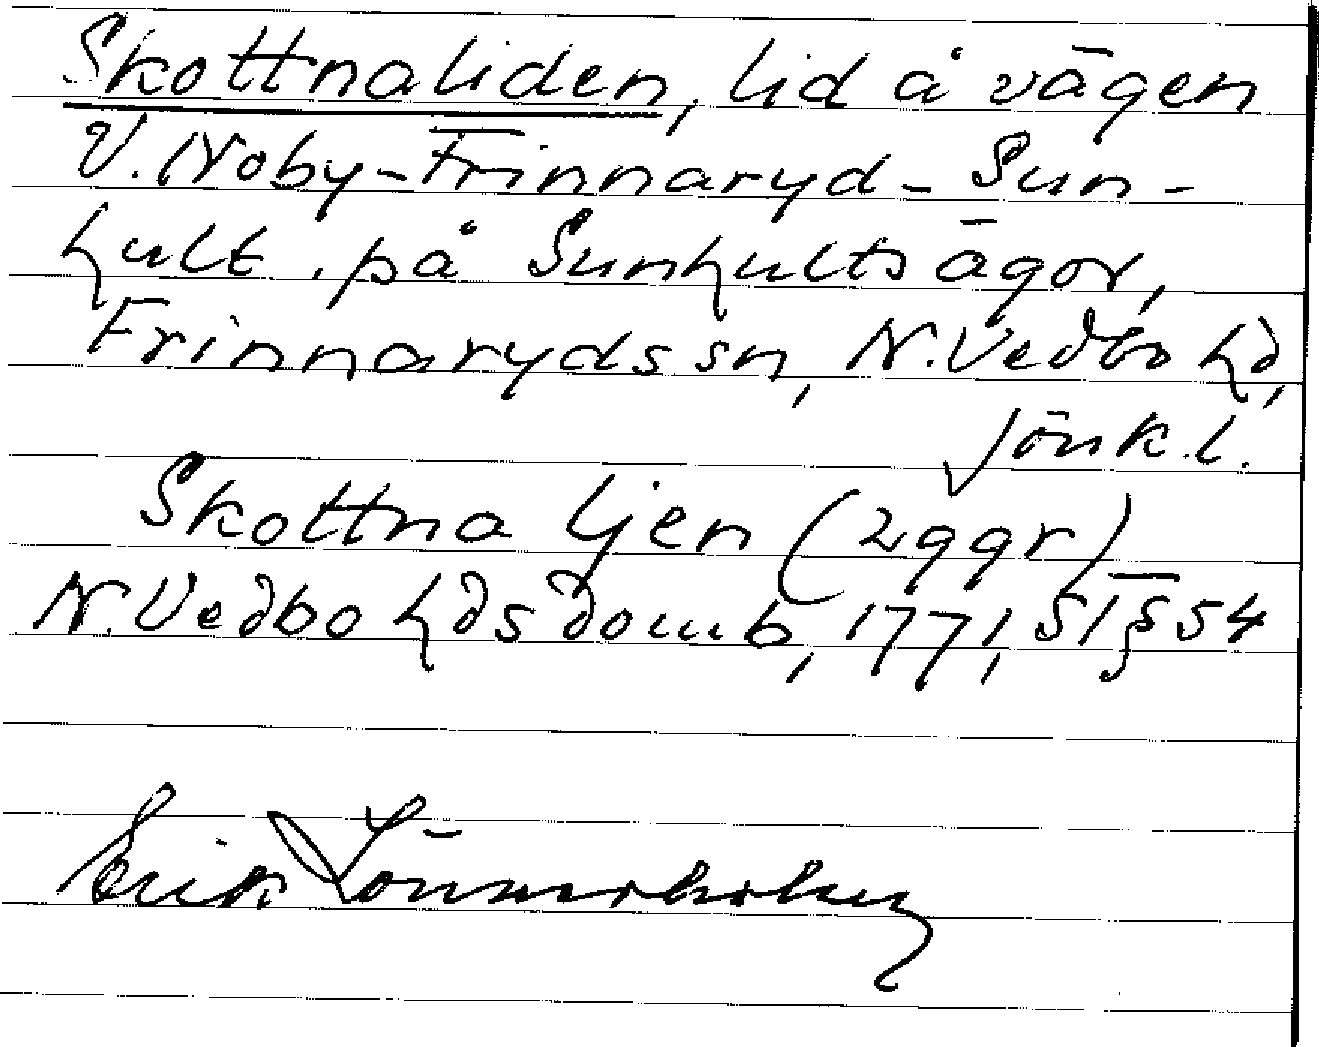 Skottnaliden, lid å vägen
V. Noby-Frinnaryd-Sun-
hult, på Sunhults ägor,
Frinnaryds sn, N. Vedbo hd,
Jönk. l.
Skottna ljen (2 ggr)
N. Vedbo hds domb, 1771, 51 § 54
Erik